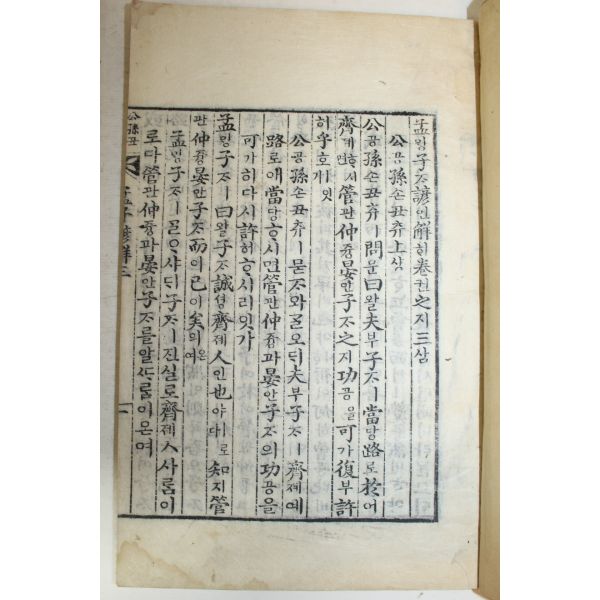 孟ᄆᆡᆼ子ᄌᆞ諺언解ᄒᆡ卷권之지三삼
公공孫손丑츄上샹
公공孫손丑츄ㅣ問문曰왈夫부子ᄌᆞㅣ當당路로於어
齊졔ᄒᆞ시면管관仲듕晏안子ᄌᆞ之지功공을可가復부許
허乎호잇가
公공孫손丑츄ㅣ묻ᄌᆞ와ᄀᆞᆯ오ᄃᆡ夫부子ᄌᆞㅣ齊졔예
路로애當당ᄒᆞ시면管관仲듕과晏안子ᄌᆞ의功공을
可가히다시許허ᄒᆞ시리잇가
孟ᄆᆡᆼ子ᄌᆞㅣ曰왈子ᄌᆞ誠셩齊졔人인也야ㅣ로다知지管
관仲듕晏안子ᄌᆞ而이已이矣의온여
孟ᄆᆡᆼ子ᄌᆞㅣᄀᆞᆯᄋᆞ샤ᄃᆡ子ᄌᆞㅣ진실로齊졔人사ᄅᆞᆷ이
로다管관仲듕과晏안子ᄌᆞ를알ᄯᆞᄅᆞᆷ이온여
公孫丑
孟子諺解三
一